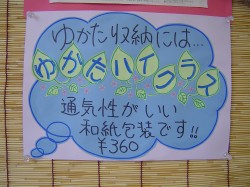 ゆかた収納には…
ゆかたハイクライ
通気性がいい
和紙包装です!!
¥360